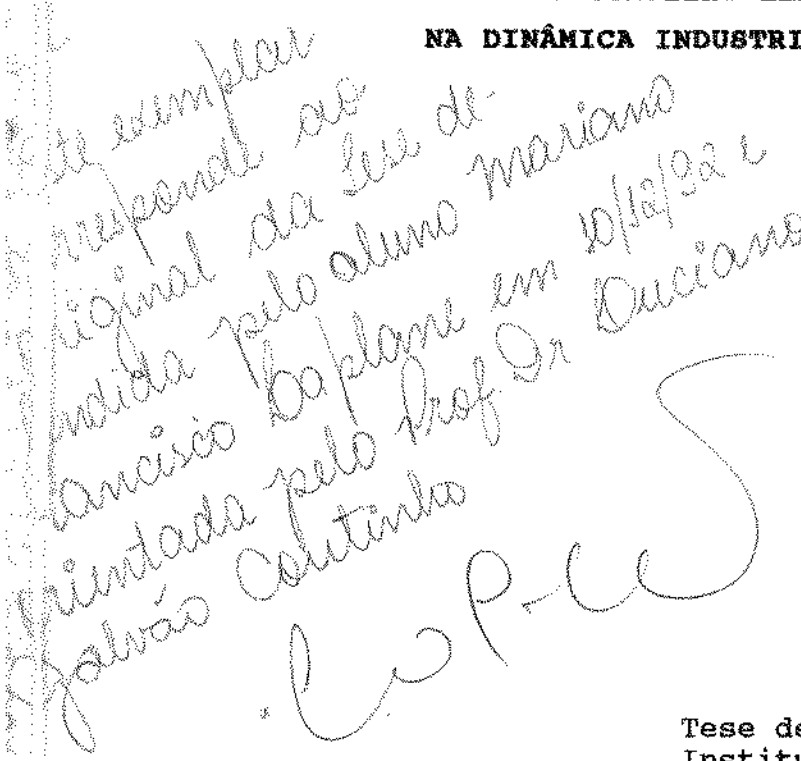 NA DINÂMICA INDUSTRI
este exemplar
corresponde ao
original da tese de-
fendida pelo aluno Mariano
Francisco Laplane em 10/12/92 e
orientada pelo Prof. Dr Luciano
Galvão Coutinho
Tese de
Institu